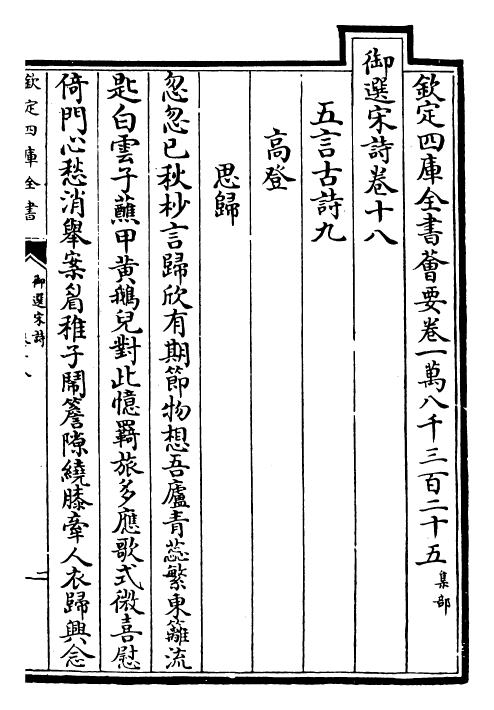 欽定四庫全書薈要卷一萬八千三百二十五 集部
御選宋詩卷十八
五言古詩九
高登
思歸
忽忽已秋杪言歸欣有期節物想吾廬青蕊繁東籬流
匙白雲子蘸甲黄鵝兒對此憶羇旅多應歌式微喜慰
倚門心愁消舉案眉稚子鬧簷隙繞膝牽人衣歸興念
欽定四庫全書
御選宋詩
卷十八
一